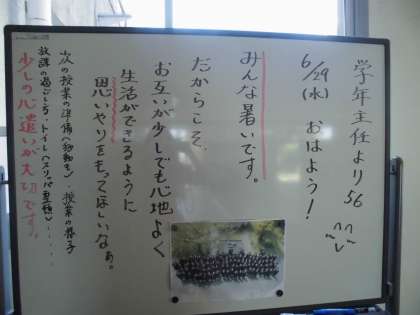 学年主任より 56
6/29(水) おはよう！
みんな暑いです。
だからこそ、
お互いが少しでも心地よく
生活ができるように
思いやりをもってほしいなぁ。
次の授業の準備(移動も)・授業の様子
放課の過ごし方・トイレ(スリッパ整頓)……
少しの心遣いが大切です。